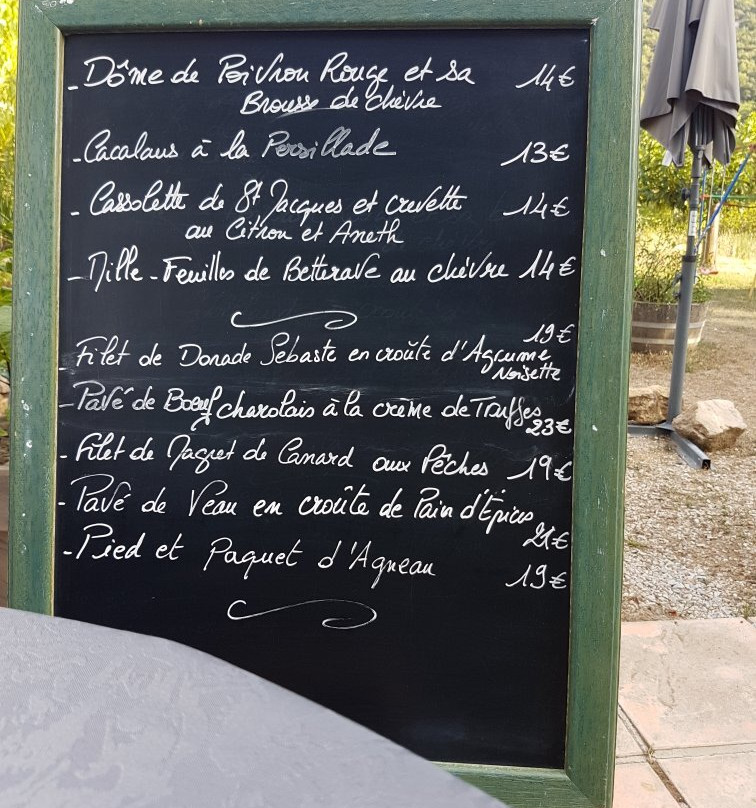 - Dôme de Poivron Rouge et sa 14€
Brousse de chèvre
- Cacalaus à la Persillade 13€
- Cassolette de St Jacques et crevette 14€
au Citron et Aneth
- Mille-Feuilles de Betterave au chèvre 14€
19€
- Filet de Dorade Sébaste en croûte d'Agrume
Noisette
- Pavé de Boeuf charolais à la crème de Truffes
23€
- Filet de Magret de Canard aux Pêches 19€
- Pavé de Veau en croûte de Pain d'Épices
21€
- Pied et Paquet d'Agneau 19€